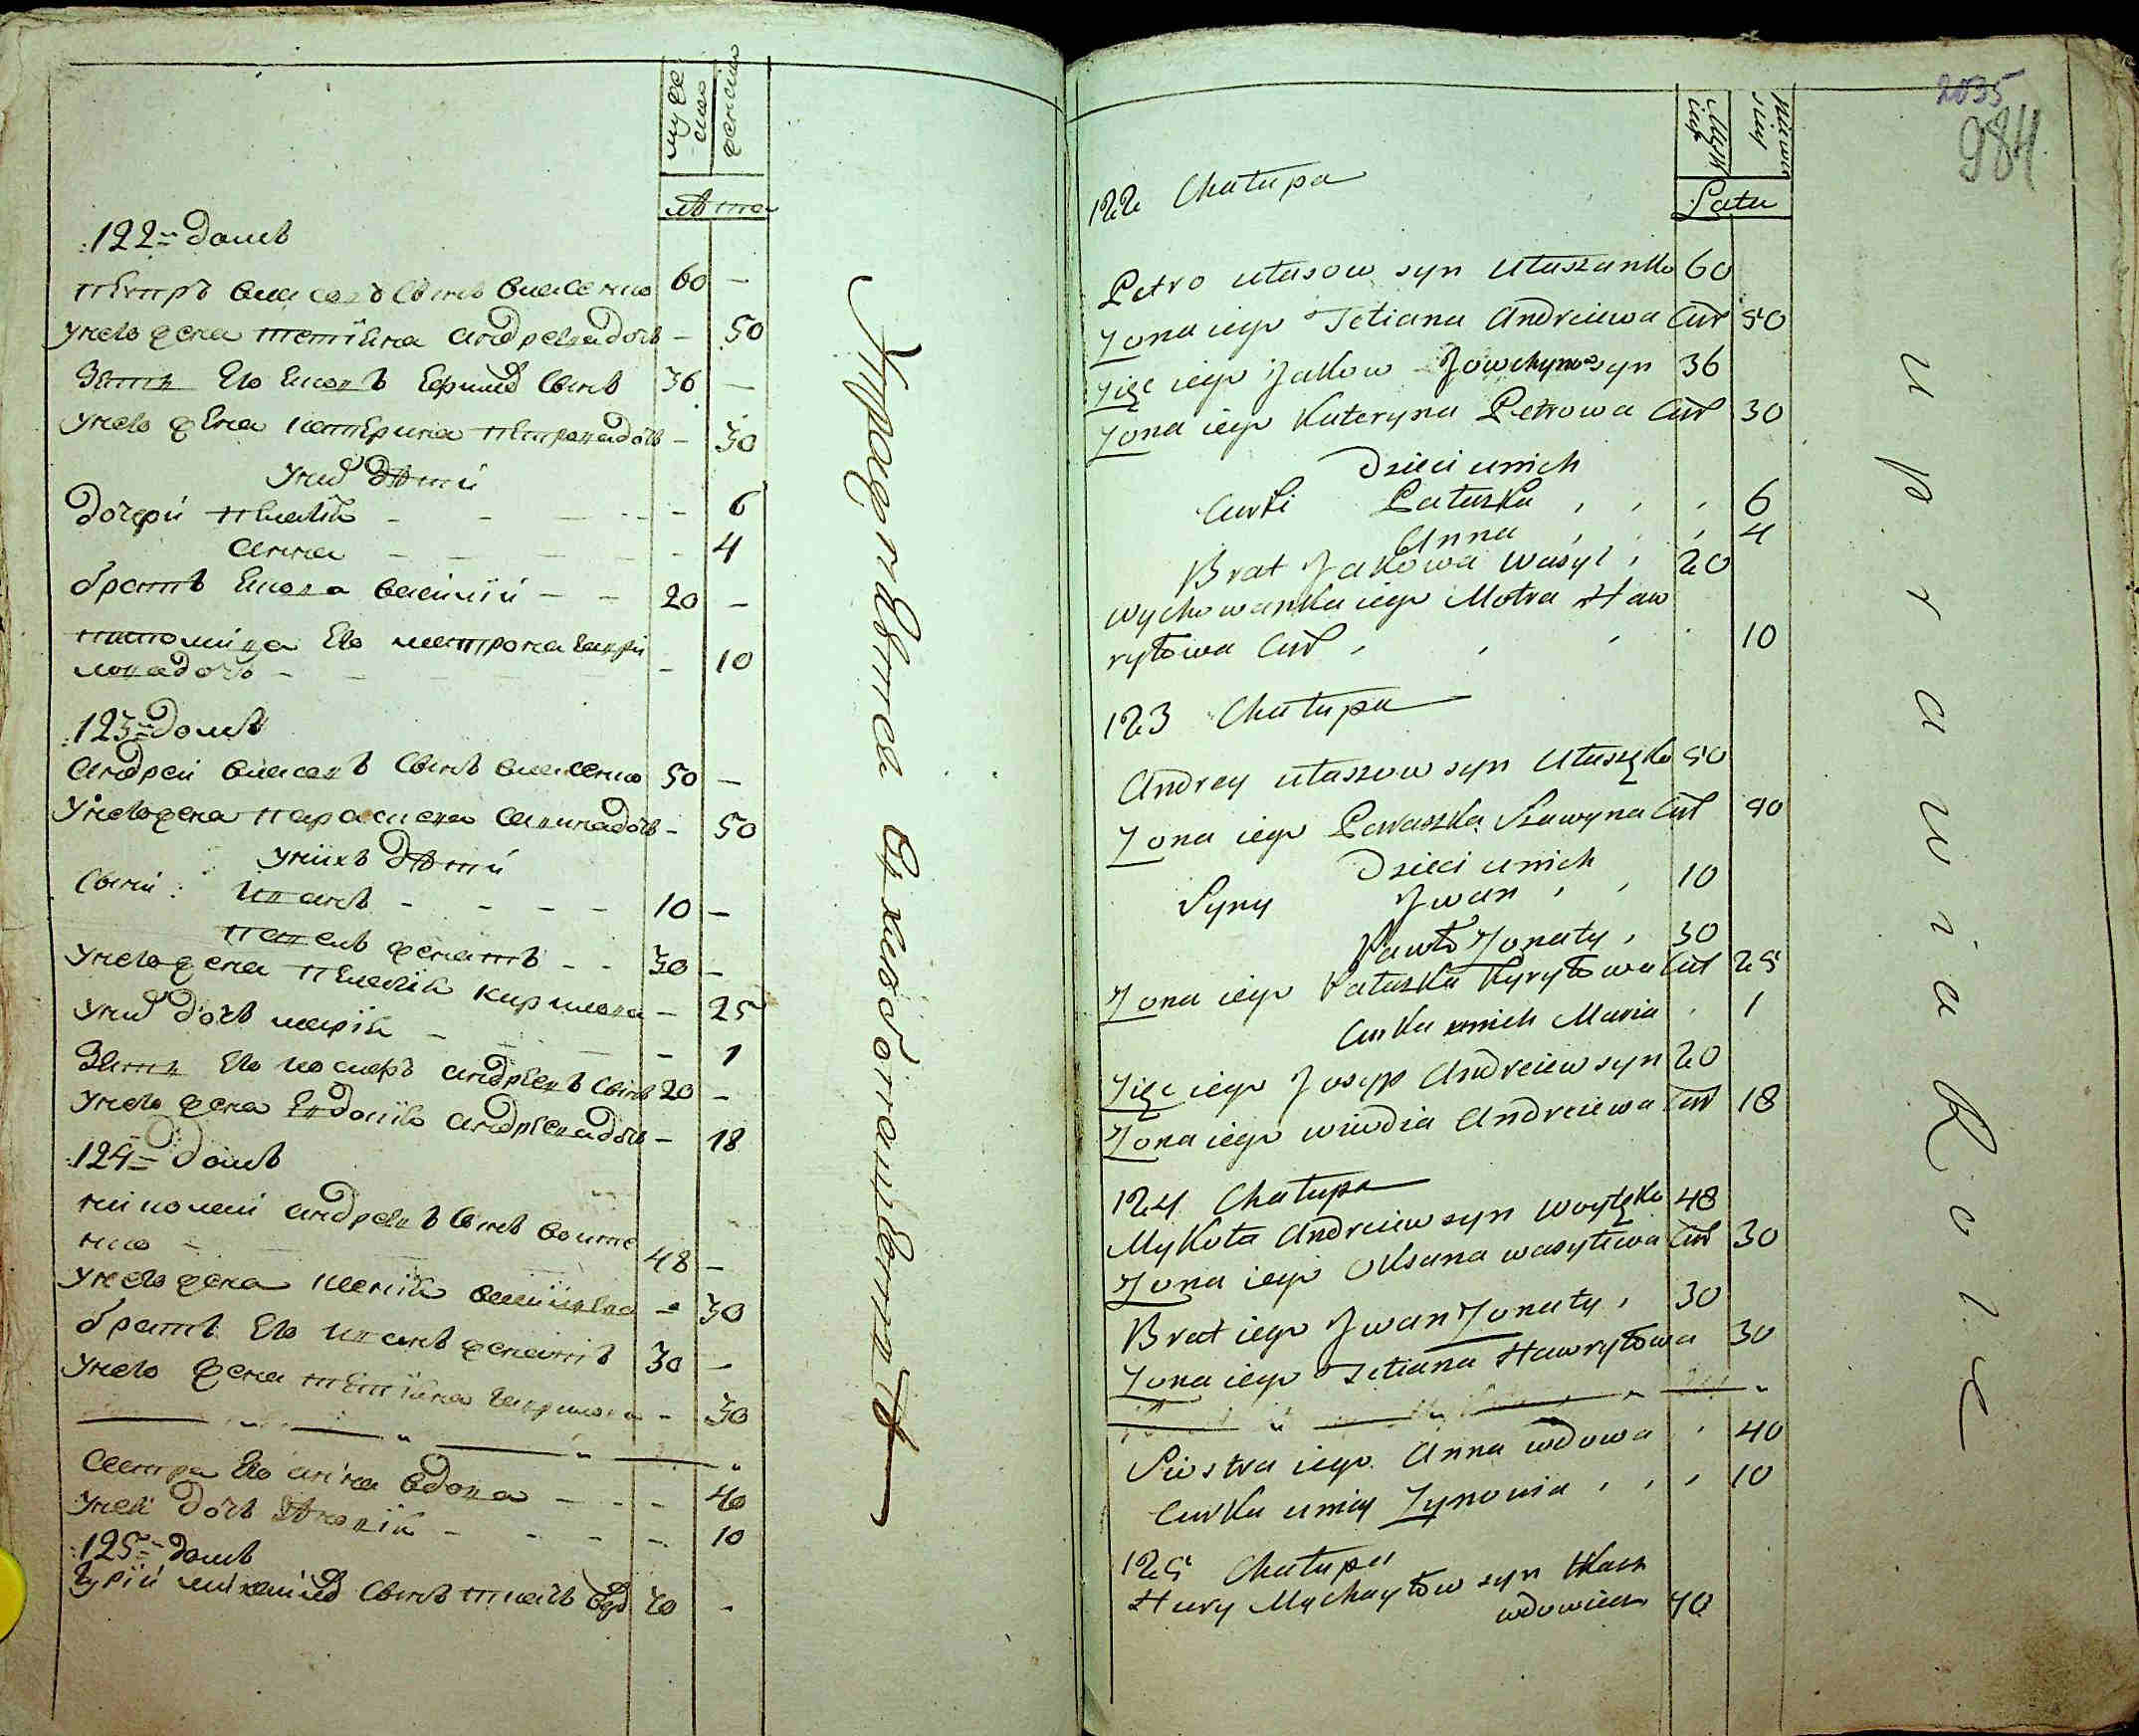 мужеско
женско
лѣта
122 домъ
Петръ Власовъ сынъ Власенко 60 —
У него жена Тетіяна Андреева дочь — 50
Зять его Яковъ Ефимов сынъ 36 —
У него жена Катерина Петрова дочь — 30
У них дѣти
Дочери Пелагія — 6
Анна — 4
братъ Якова Василій — 20 —
питомица его Матрона Гаври
лова дочь — 10
123 домъ
Андрей Власовъ сынъ Власенко 50 —
У него жена Параскева Савина дочь — 50
У нихъ дѣти
Сыны: Иванъ — 10 —
Павелъ женатъ — 30 —
У него жена Пелагія Кирилова — 25
У них дочь Марія — 1
Зять его Iосифъ Андреевъ сынъ 20 —
У него жена Евдокія Андреева дочь — 18
124 домъ
Николай Андреевъ сынъ Войте
нко — 48 —
У него жена Ксенія Василіева — 30
братъ его Иванъ женатъ 30 —
У него жена Тетіяна Гаврилова — 30
Сестра его Анна вдова — 40
У ней дочь Зѣновія — 10
125 домъ
Гурій Михайлов сынъ Ткачъ вдов 40 -
Упражняются в хлебопашествѣ
2035
984
Męzk
iey
Niewia
siey
Latu
122 Chałupa
Petro Ułasow syn Ułaszenko 60
Zona iego Tetiana Andreiewa Cur 50
Zięc iego Jakow Jowchymow syn 36
Zona iego Kateryna Petrowa Cur 30
Dzieci unich
Curki Pałaszka , , , 6
Anna , , 4
Brat Jakowa Wasyl , 20
Wychowanka iego Motra Haw
ryłowa Cur , , , . 10
123 Chałupa
Andrey Ułaszow syn Ułuszęko 50
Zona iego Paraszka Sawyna Cur 90
Dzieci unich
Syny Jwan , , 10
Pawło Zonaty , 30
Zona iego Pałaszka Kyryłowa Cur 25
Curka unich Maria . 1
Zięc iego Josyp Andreiew syn 20
Zona iego Wiwdia Andreiewa Cur 18
124 Chałupa
Mykoła Andreiew syn Woytęko 48
Zona iego Oksana Wasylewa Cur 30
Brat iego Jwan Zonaty , 30
Zona iego Tetiana Hawryłowa 30
Siostra iego Anna wdowa , 40
Curka uniey Zynowia , , , 10
125 Chałupa
Hury Mychayłow syn Tkacz
wdowiec 40
uprawia Role